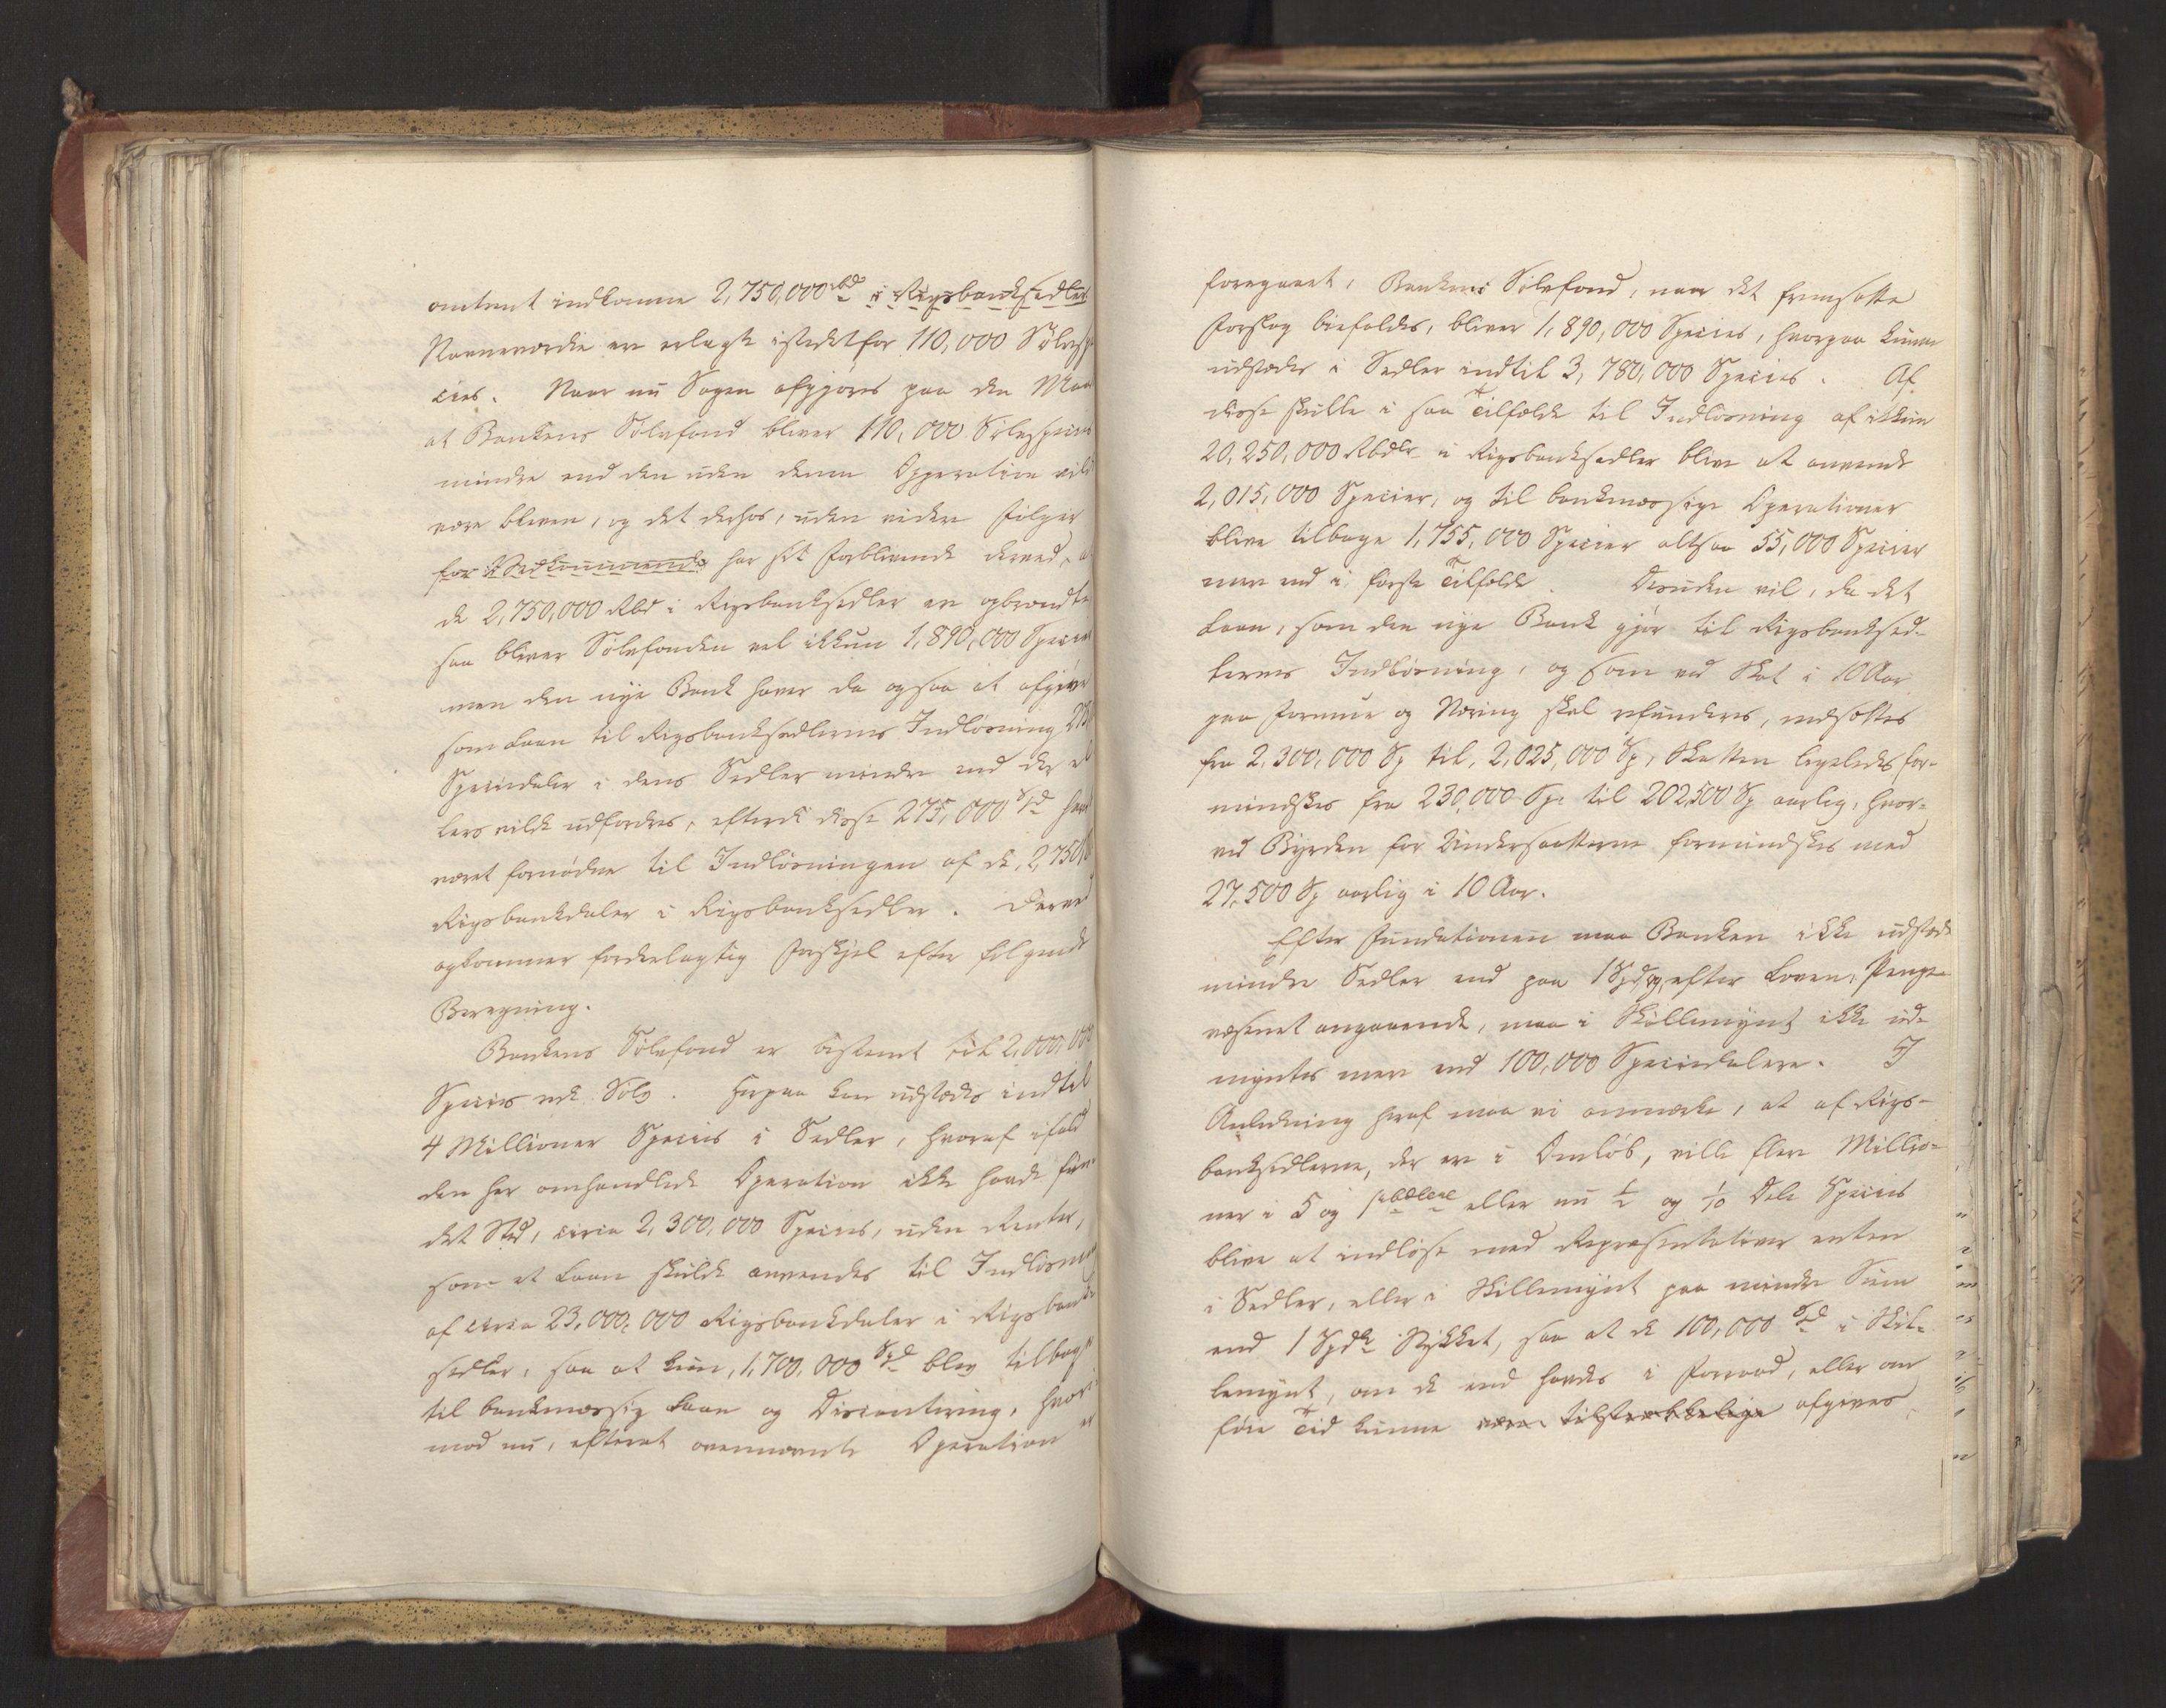 omtrent indkomne 2,750,000 rbd i Rigsbanksedler
Navneværdie er erlagt istedetfor 110,000 Sølvspe
cies. Naar nu Sagen afgjøres paa den Maa
at Bankens Sølvfond bliver 110,000 Sølvspecies
mindre end den uden denne Opperation vild
være bleven, og det derhos, uden videre Følger
for Vedkommende har sit Forblivende derved, a
de 2,750,000 Rbd i Rigsbanksedler ere opbrændte
saa bliver Sølvfonden vel ikkun 1,890,000 Species
men den nye Bank haver da ogsaa at afgive
som Laan til Rigsbanksedlernes Indløsning 275
Speciedaler i dens Sedler mindre end der el
lers vilde udfordres, efterdi disse 275,000 Spd havd
været fornødne til Indløsningen af de 2,750,00
Rigsbankdaler i Rigsbanksedler. Derved
opkommer fordeelagtig Forskjel efter følgende
Beregning.
Bankens Sølvfond er bestemt til 2,000,000
Species rede Sølv. Herpaa kan udstædes indtil
4 Millioner Species i Sedler, hvoraf ifald
den her omhandlede Operation ikke havde fun-
det Sted, circa 2,300,000 Species, uden Renter,
som et Laan skulde anvendes til Indløsning
af circa 23,000,000 Rigsbankdaler i Rigsbank
sedler, saa at kun, 1,700,000 Spd blev tilbage
til bankmæssig Laan og Discontering, hvori-
mod nu, efterat ovennævnte Operation er
foregaaet, Bankens Sølvfond, naar det fremsatte
Forslag biefaldes, bliver 1,890,000 Species, hvorpaa kunne
udstædes i Sedler indtil 3,780,000 Species. Af
disse skulle i saa Tilfælde til Indløsning af ikkun
20,250,000 Rbdlr i Rigsbanksedler blive at anvende
2,015,000 Species, og til bankmæssige Operationer
blive tilbage 1,755,000 Species altsaa 55,000 Species
mere end i første Tilfælde. Desuden vil, da det
Laan, som den nye Bank gjør til Rigsbanksed-
lernes Indløsning, og som ved Skat i 10 Aar
paa Formue og Næring skal refunderes, nedsættes
fra 2,300,000 Sp til 2,025,000 Sp, Skatten ligeledes for-
mindskes fra 230,000 Sp. til 202,500 Sp aarlig, hvor-
ved Byrden for Undersaatterne formindskes med
27,500 Sp aarlig i 10 Aar.
Efter Fundationen maa Banken ikke udstæde
mindre Sedler end paa 1 Spd, og, efter Loven, Penge-
væsenet angaaende, maa i Skillemynt ikke ud-
myntes mere end 100,000 Speciedalere. I
Anledning heraf maa vi anmærke, at af Rigs-
banksedlerne, der ere i Omløb, ville flere Millio-
ner i 5 og 1 rbdlere eller nu ½ og 1/10 Dele Species
blive at indløse med Repræsentativer enten
i Sedler, eller i Skillemynt paa mindre Sum
end 1 Spdr Stykket, saa at de 100,000 Spd i Skil-
lemynt, om de end havdes i Forraad, eller om
føie Tid kunne være tilstrækkelige afgives,